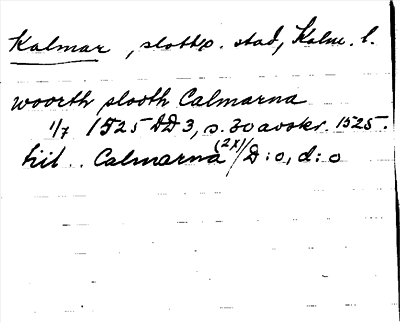 Kalmar, slottsp. stad, Kalm. l.
woorth slooth Calmarna
1/7 1525 DD 3, s. 30 avskr. 1525.
hit .. Calmarna (2x)/D:o, d:o